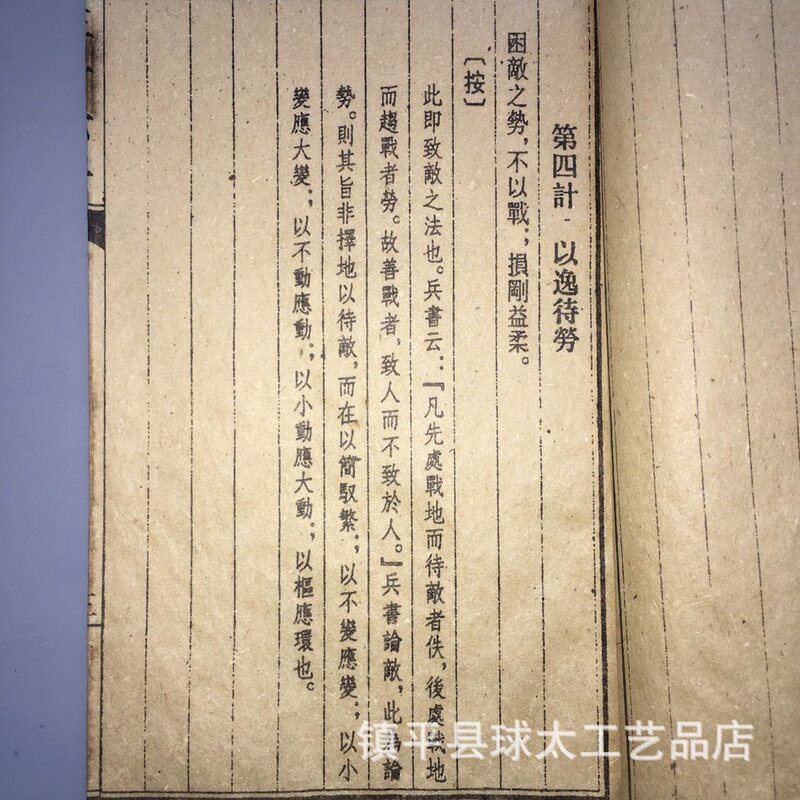 第四計 以逸待勞
困敵之勢，不以戰；損剛益柔。
〔按〕
此即致敵之法也。兵書云：『凡先處戰地而待敵者佚，後處戰地
而趨戰者勞。故善戰者，致人而不致於人。』兵書論敵，此為論
勢。則其旨非擇地以待敵，而在以簡馭繁；以不變應變；以小
變應大變；以不動應動；以小動應大動；以樞應環也。
三
镇平县球太工艺品店